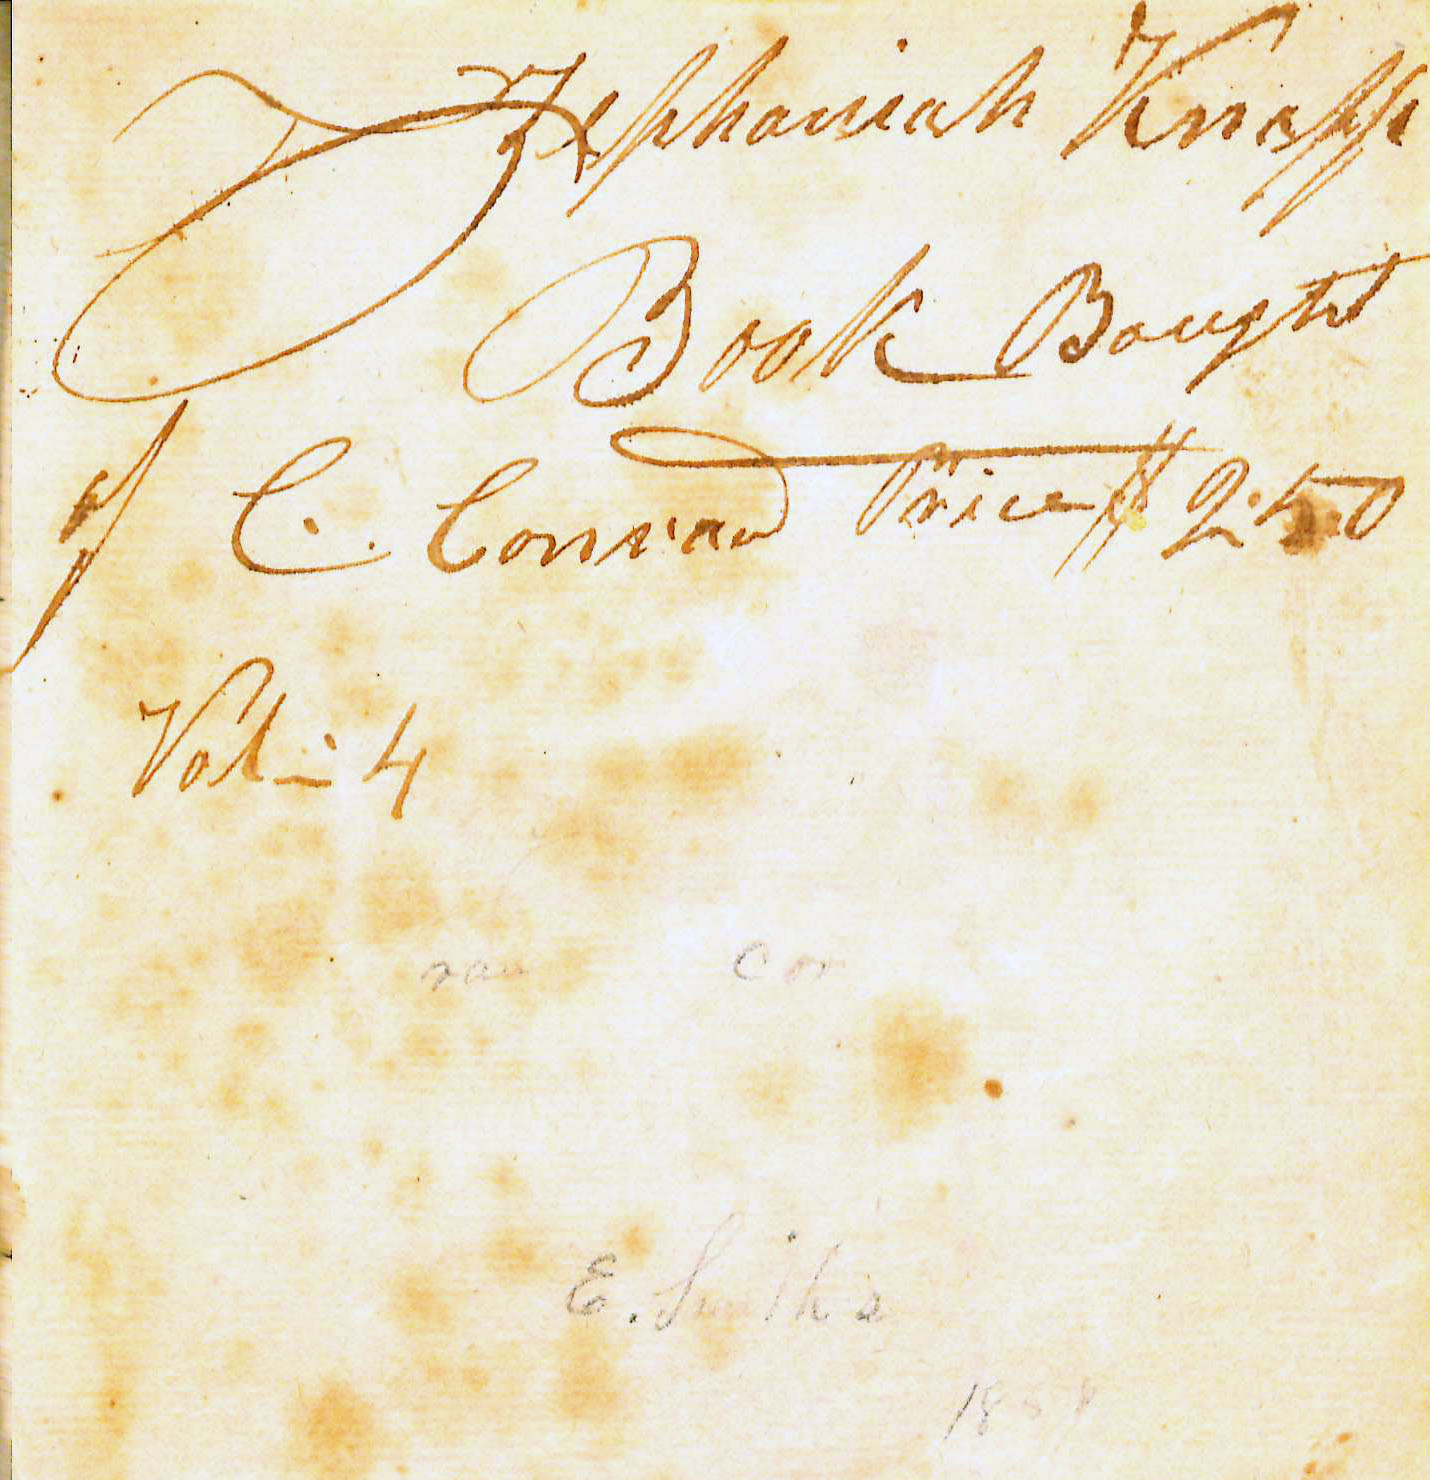 Zephaniah Knapp
Book Bought
of C. Conrad Price $ 2.50
Vol - 4
rau Cor
E. Smith
18